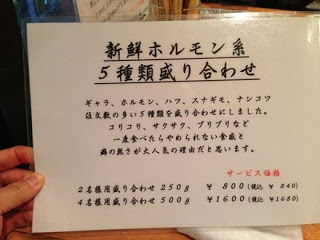 新鮮ホルモン系
5種類盛り合わせ
ギャラ、ホルモン、ハツ、スナギモ、ナンコツ
注文数の多い5種類を盛り合わせにしました。
コリコリ、サクサク、プリプリなど
一度食べたらやめられない食感と
癖の無さが大人気の理由だと思います。
サービス価格
2名様用盛り合わせ 250g ¥ 800(税込 ¥ 840)
4名様用盛り合わせ 500g ¥1600(税込 ¥1680)